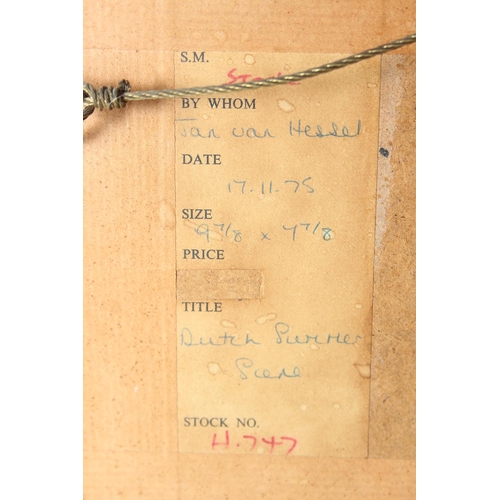 S.M.
Stock
BY WHOM
Jan van Hessel
DATE
17.11.75
SIZE
9 7/8 x 7 7/8
PRICE
TITLE
Dutch Summer
Scene
STOCK NO.
H.747